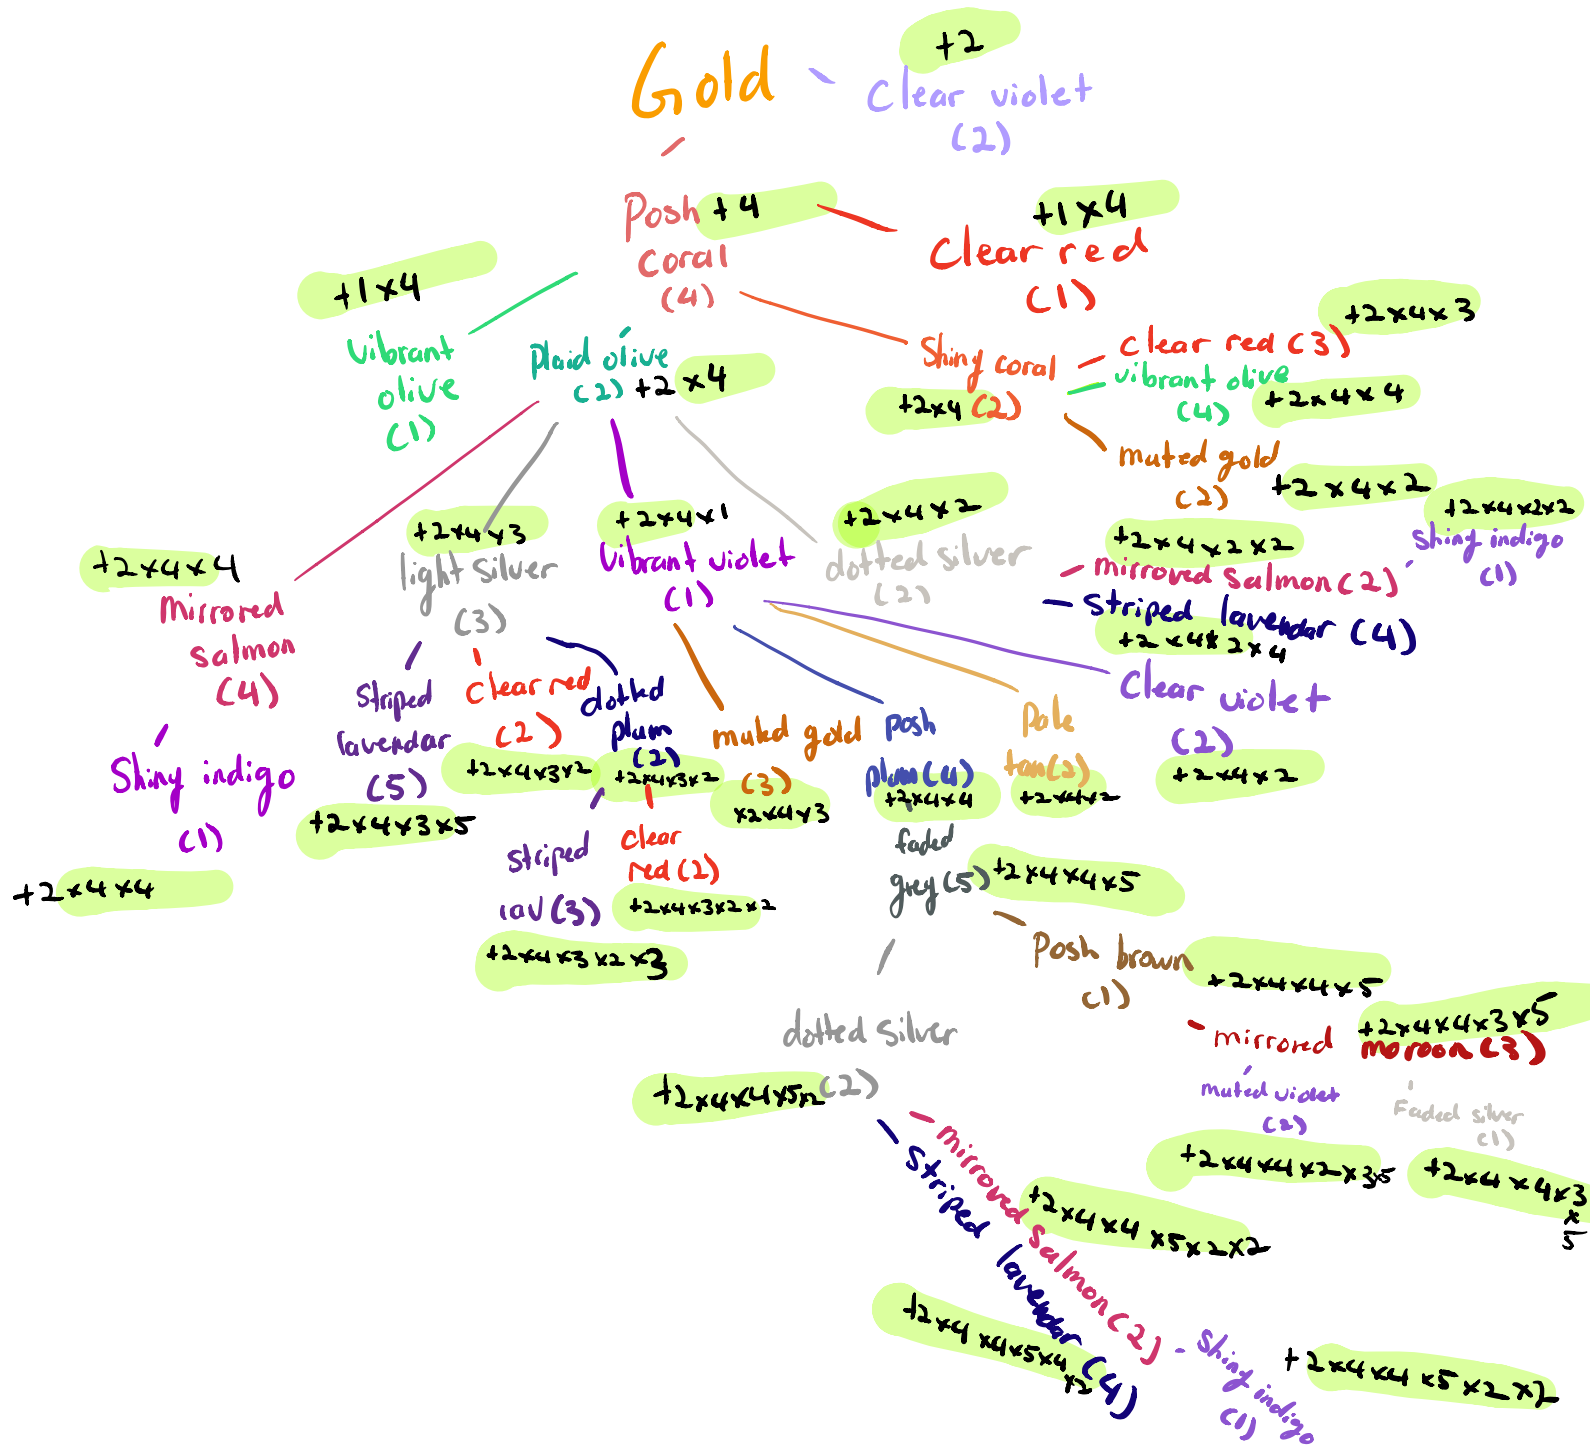 +2
Gold
Clear violet
(2)
Posh +4
coral
(4)
+1x4
Clear red
(1)
+1x4
vibrant
olive
(1)
plaid olive
(2) +2x4
Shiny coral
+2x4 (2)
clear red (3)
+2x4x3
vibrant olive
(4)
+2x4x4
muted gold
(2)
+2x4x2
+2x4x2x2
mirroved salmon(2)
+2x4x2x2
shiny indigo
(1)
striped lavendar (4)
+2x4x2x4
+2x4x4
Mirrored
salmon
(4)
Shiny indigo
(1)
+2x4x4
+2x4x3
light silver
(3)
striped
lavendar
(5)
+2x4x3x5
clear red
(2)
+2x4x3x2
dotted
plum
(2)
+2x4x3x2
striped
lav(3)
+2x4x3x2x3
clear
red(2)
+2x4x3x2x2
+2x4x1
vibrant violet
(1)
muted gold
(3)
x2x4x3
posh
plum(4)
+2x4x4
Pale
tan(2)
+2x4x2
Clear violet
(2)
+2x4x2
+2x4x2
dotted silver
(2)
faded
grey(5)
+2x4x4x5
Posh brown
(1)
+2x4x4x5
+2x4x4x3x5
mirrored moroon(3)
muted violet
(2)
+2x4x4x2x3x5
Faded silver
(1)
+2x4x4x3
x
5
dotted silver
(2)
+2x4x4x5x2
mirroved salmon(2)
+2x4x4x5x2x2
striped lavendar (4)
+2x4x4x5x4
x2
shiny indigo
(1)
+2x4x4x5x2x2